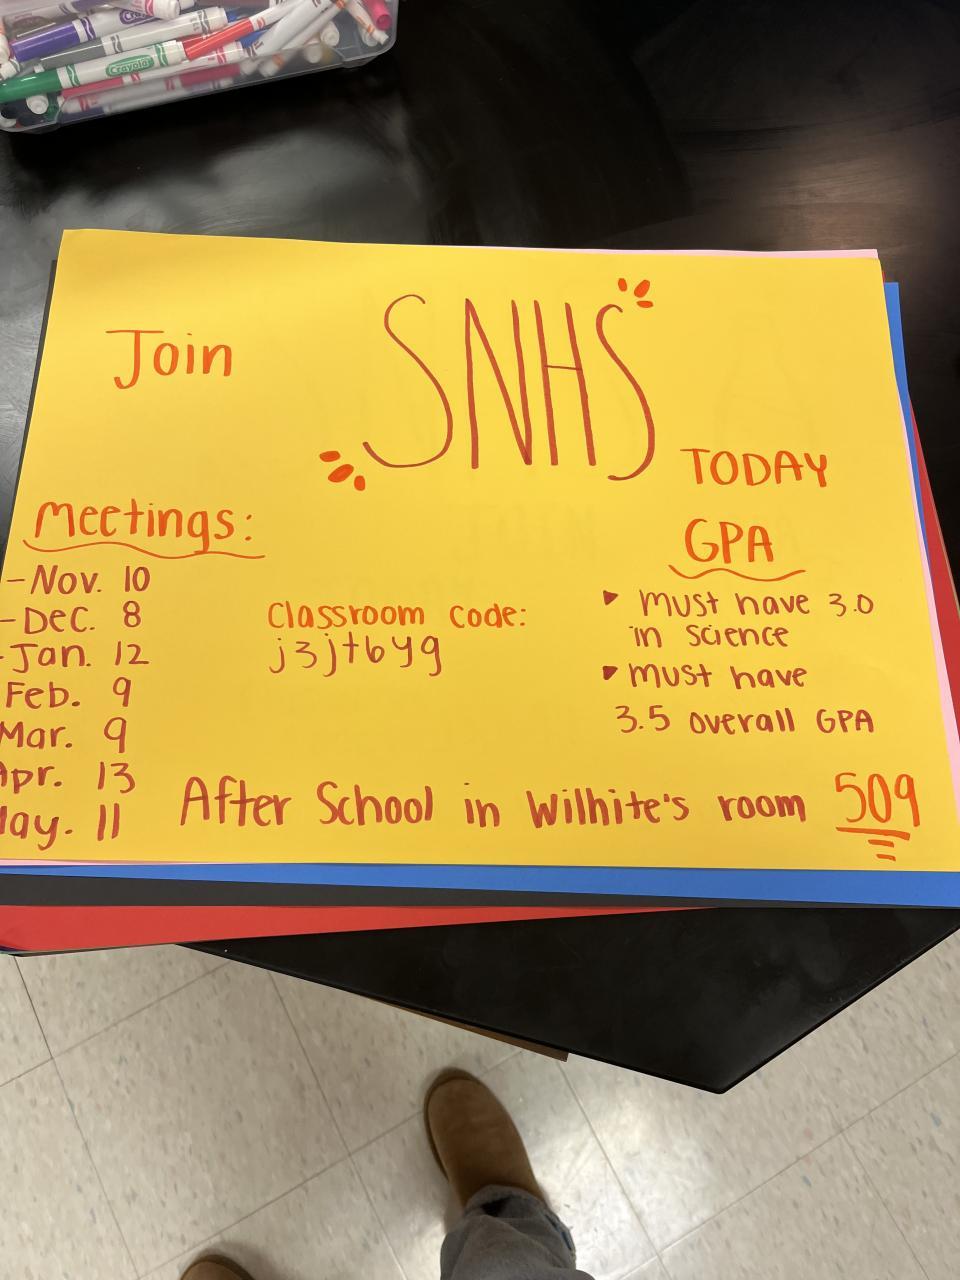 Crayola
Join SNHS TODAY
Meetings:
- Nov. 10
- Dec. 8
- Jan. 12
Feb. 9
Mar. 9
Apr. 13
May. 11
Classroom code:
j3jt6yg
GPA
▸ Must have 3.0
in science
▸ Must have
3.5 overall GPA
After School in Wilhite's room 509